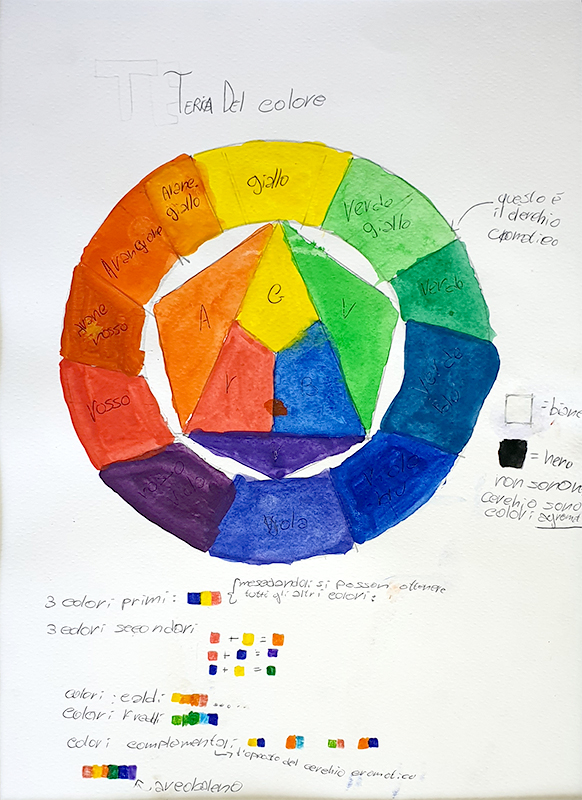 TERIA Del colore
giallo
Arane giallo
Verde giallo
Arangione
Verde
Arane rosso
Verde blu
rosso
rosso viola
Viola
Viola blu
questo è
il cerchio
cromatico
A G V
r B
= bianc
= nero
non sono n
cerchio sono
colori
3 colori primi :
mescdandoli si posson ottenere
tutti gli altri colori :
3 colori secondari
+ =
+ =
+ =
colori : caldi ......
colori freddi
colori complementari
l'opposto del cerchio cromatico
arcobaleno